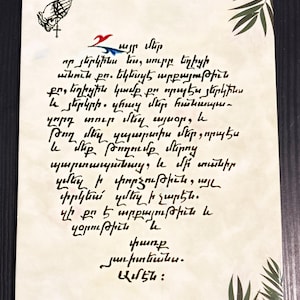 այր մեր
որ յերկինս ես, սուրբ եղիցի
անուն քո. եկեսցէ արքայութիւն
քո, եղիցին կամք քո որպէս յերկինս
և յերկրի. զհաց մեր հանապա-
զորդ տուր մեզ այսօր, և
թող մեզ զպարտիս մեր, որպէս
և մեք թողումք մերոց
պարտապանաց, և մի տանիր
զմեզ ի փորձութիւն, այլ
փրկեան զմեզ ի չարէն.
զի քո է արքայութիւն և
զօրութիւն և
փառք
յաւիտեանս.
Ամէն :